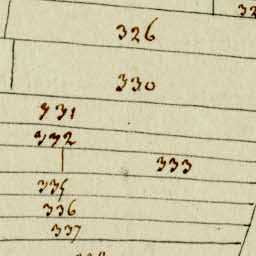 326
330
331
332
333
335
336
337